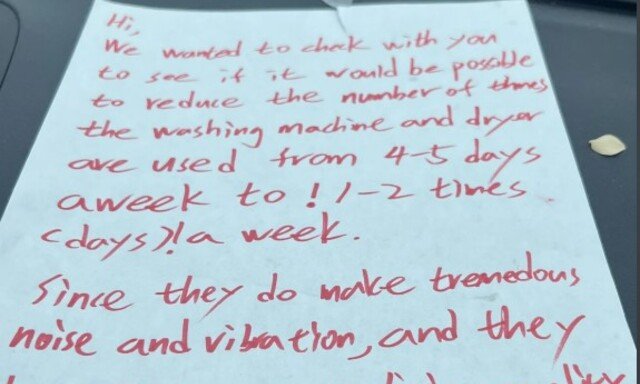 Hi,
We wanted to check with you
to see if it would be possible
to reduce the number of times
the washing machine and dryer
are used from 4-5 days
aweek to ! 1-2 times
(days)! a week.
Since they do make tremedous
noise and vibration, and they